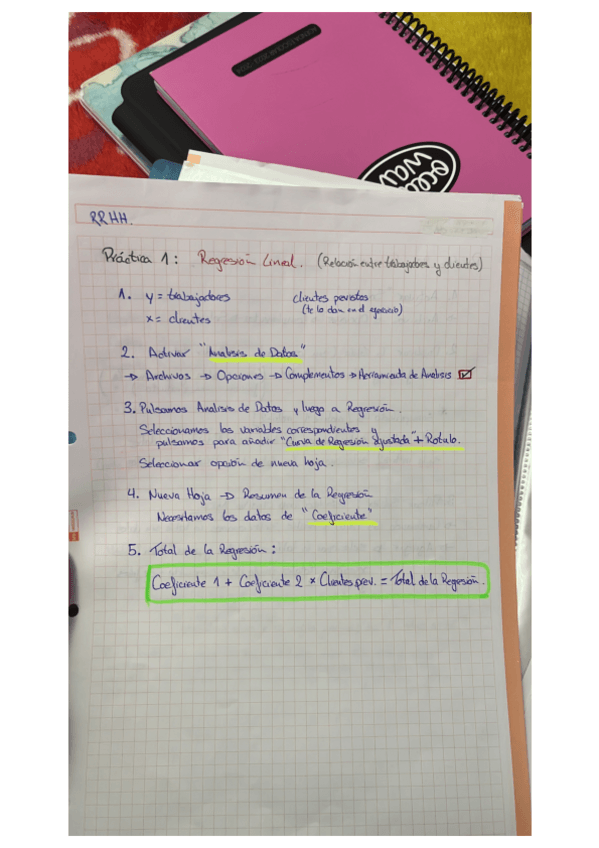 RRHH.
Práctica 1: Regresión Lineal. (Relación entre trabajadores y clientes)
1. y = trabajadores clientes previstos
x = clientes (te lo dan en el ejercicio)
2. Activar "Analisis de Datos"
→ Archivos → Opciones → Complementos → Herramienta de Analisis ☑
3. Pulsamos Analisis de Datos y luego a Regresión.
Seleccionamos las variables correspondientes y
pulsamos para añadir "Curva de Regresión Ajustada" + Rotulo.
Seleccionar opción de nueva hoja.
4. Nueva Hoja → Resumen de la Regresión
Necesitamos los datos de "Coeficiente"
5. Total de la Regresión:
Coeficiente 1 + Coeficiente 2 × Clientes prev. = Total de la Regresión.